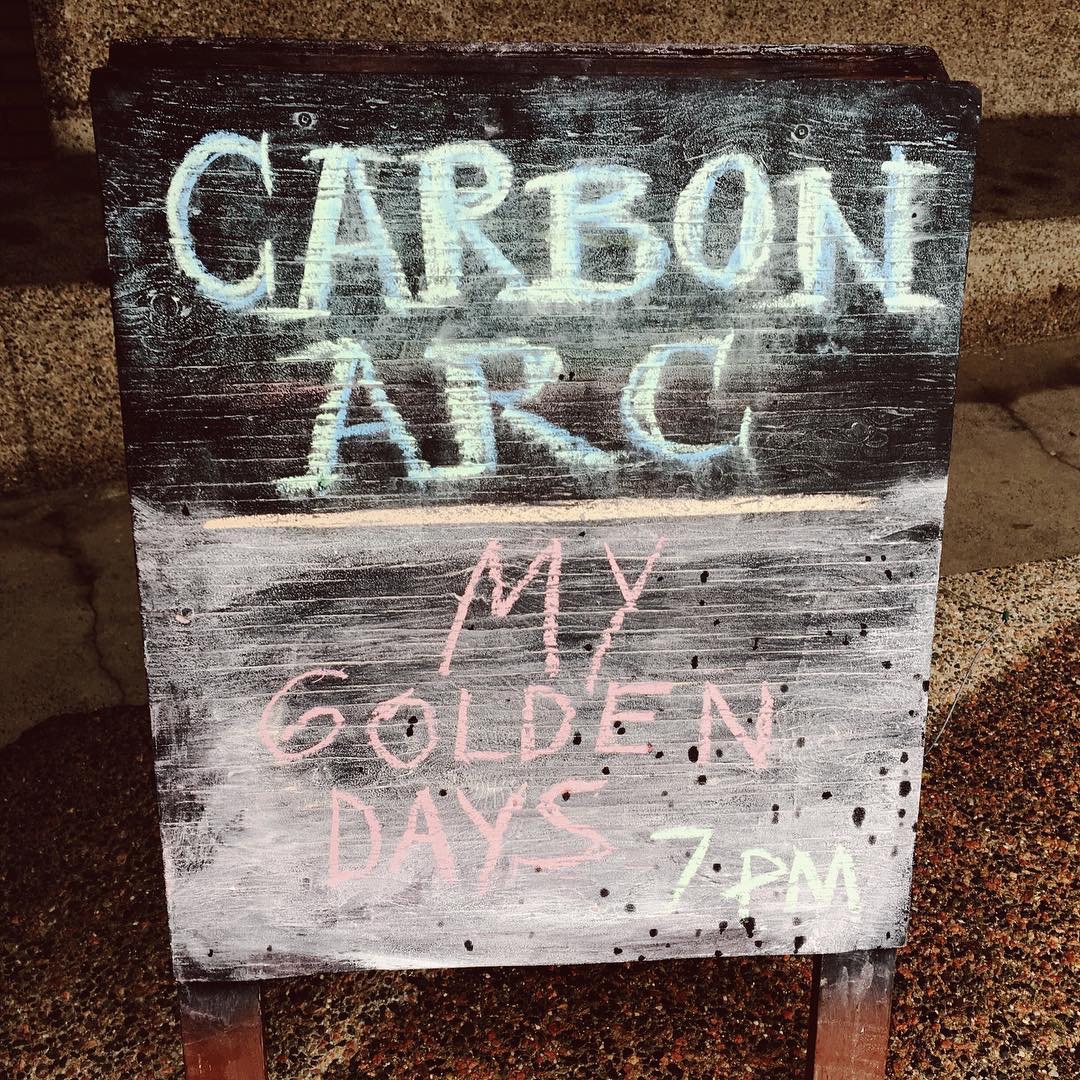 CARBON
ARC
MY
GOLDEN
DAYS
7 PM